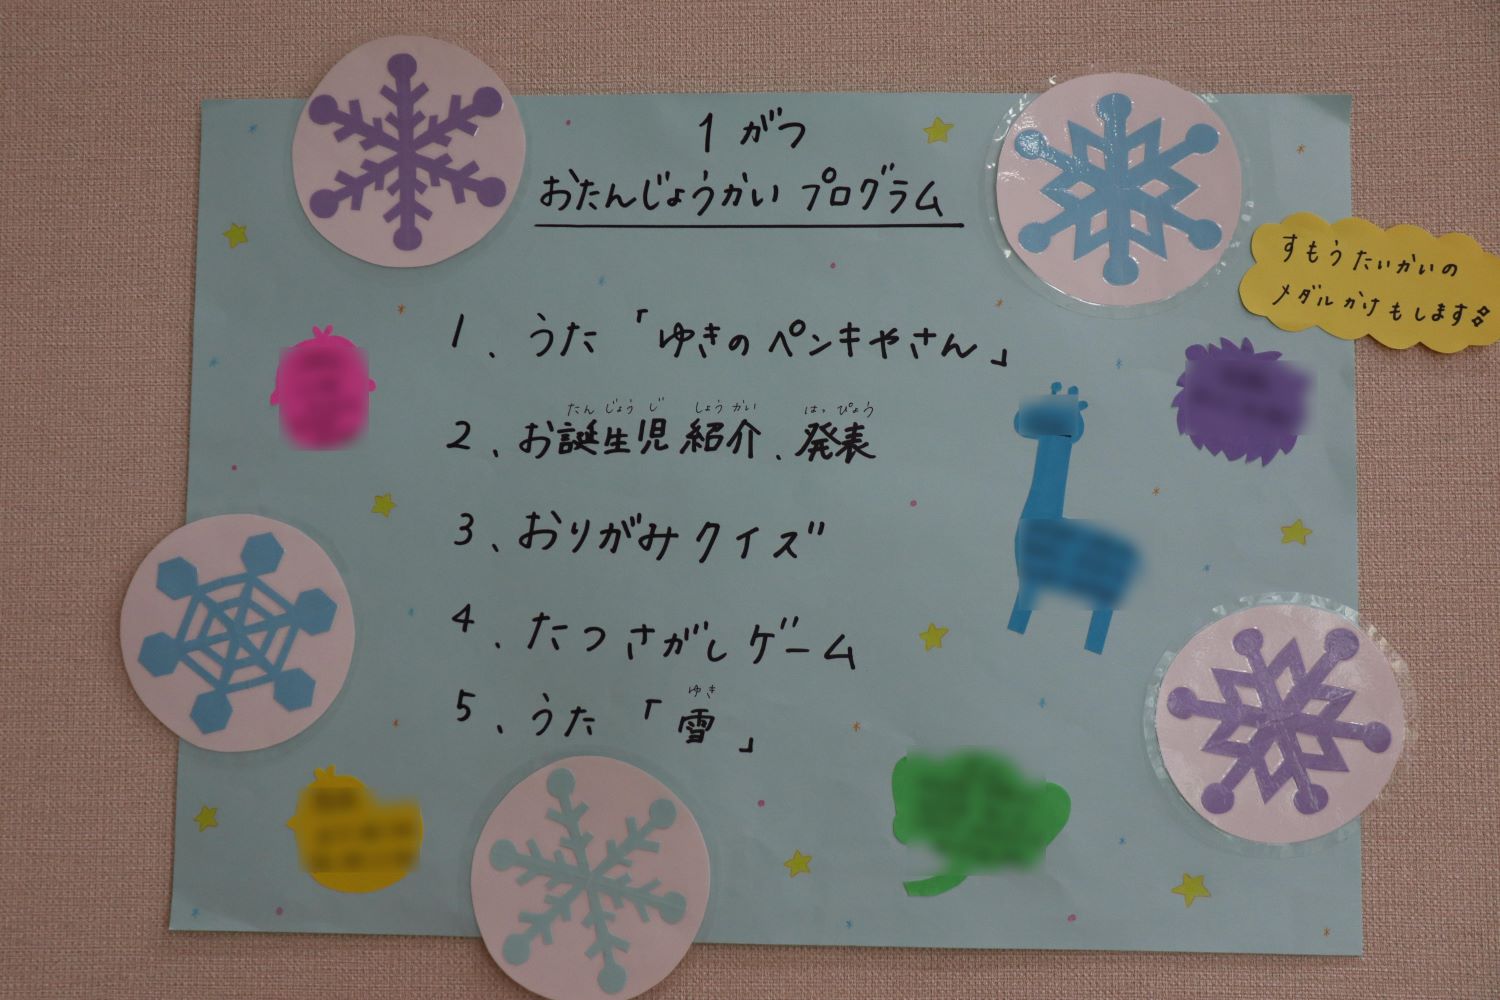 1 がつ
おたんじょうかい プログラム
すもうたいかいの
メダルかけもします
1、うた「ゆきのペンキやさん」
たんじょうじ しょうかい はっぴょう
2、お誕生児紹介、発表
3、おりがみクイズ
4、たつさがしゲーム
ゆき
5、うた「雪」